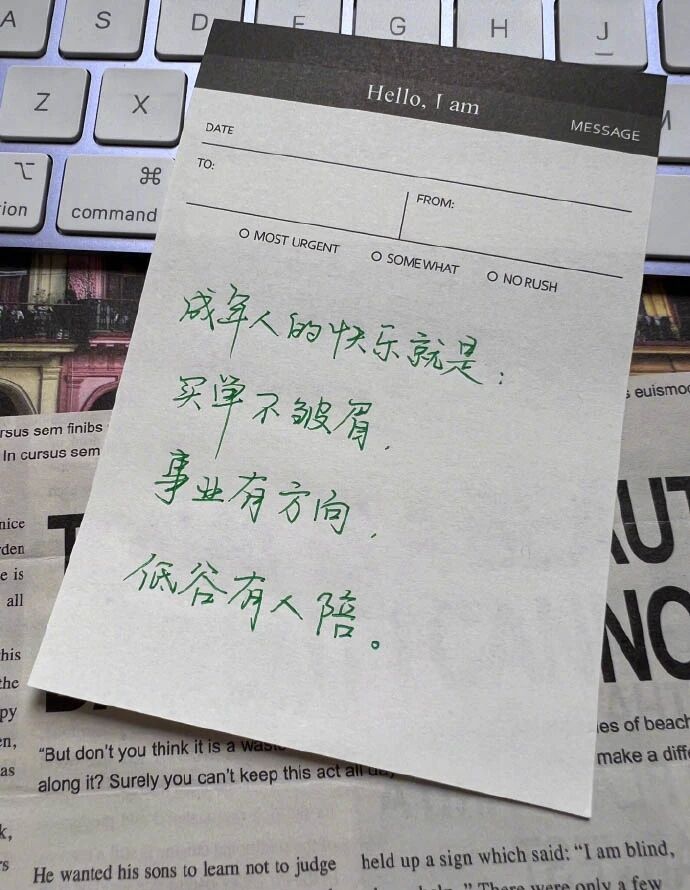 A S D F G H J
Z X
command
Hello, I am
MESSAGE
DATE
TO:
FROM:
MOST URGENT
SOMEWHAT
NO RUSH
成年人的快乐就是：
买单不皱眉，
事业有方向，
低谷有人陪。
euismo
rsus sem finibs
In cursus sem
nice
e is
all
this
the
en,
as
“But don't you think it is a
along it? Surely you can't keep this act all
ies of beach
make a diffe
He wanted his sons to learn not to judge
held up a sign which said: “I am blind,
There were only a few